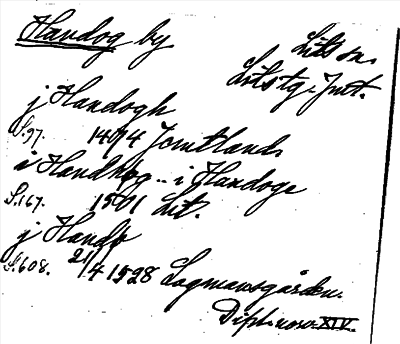 Handog by
Lits sn.
Lits tg. Jmt.
j Handogh
S. 97. 1474 Jemtlands
i Handhog - i Handoge
S. 167. 1501 Lit.
j Hando
S. 608. 21/4 1528 Lagmansgården.
Dipl. norv. XIV.